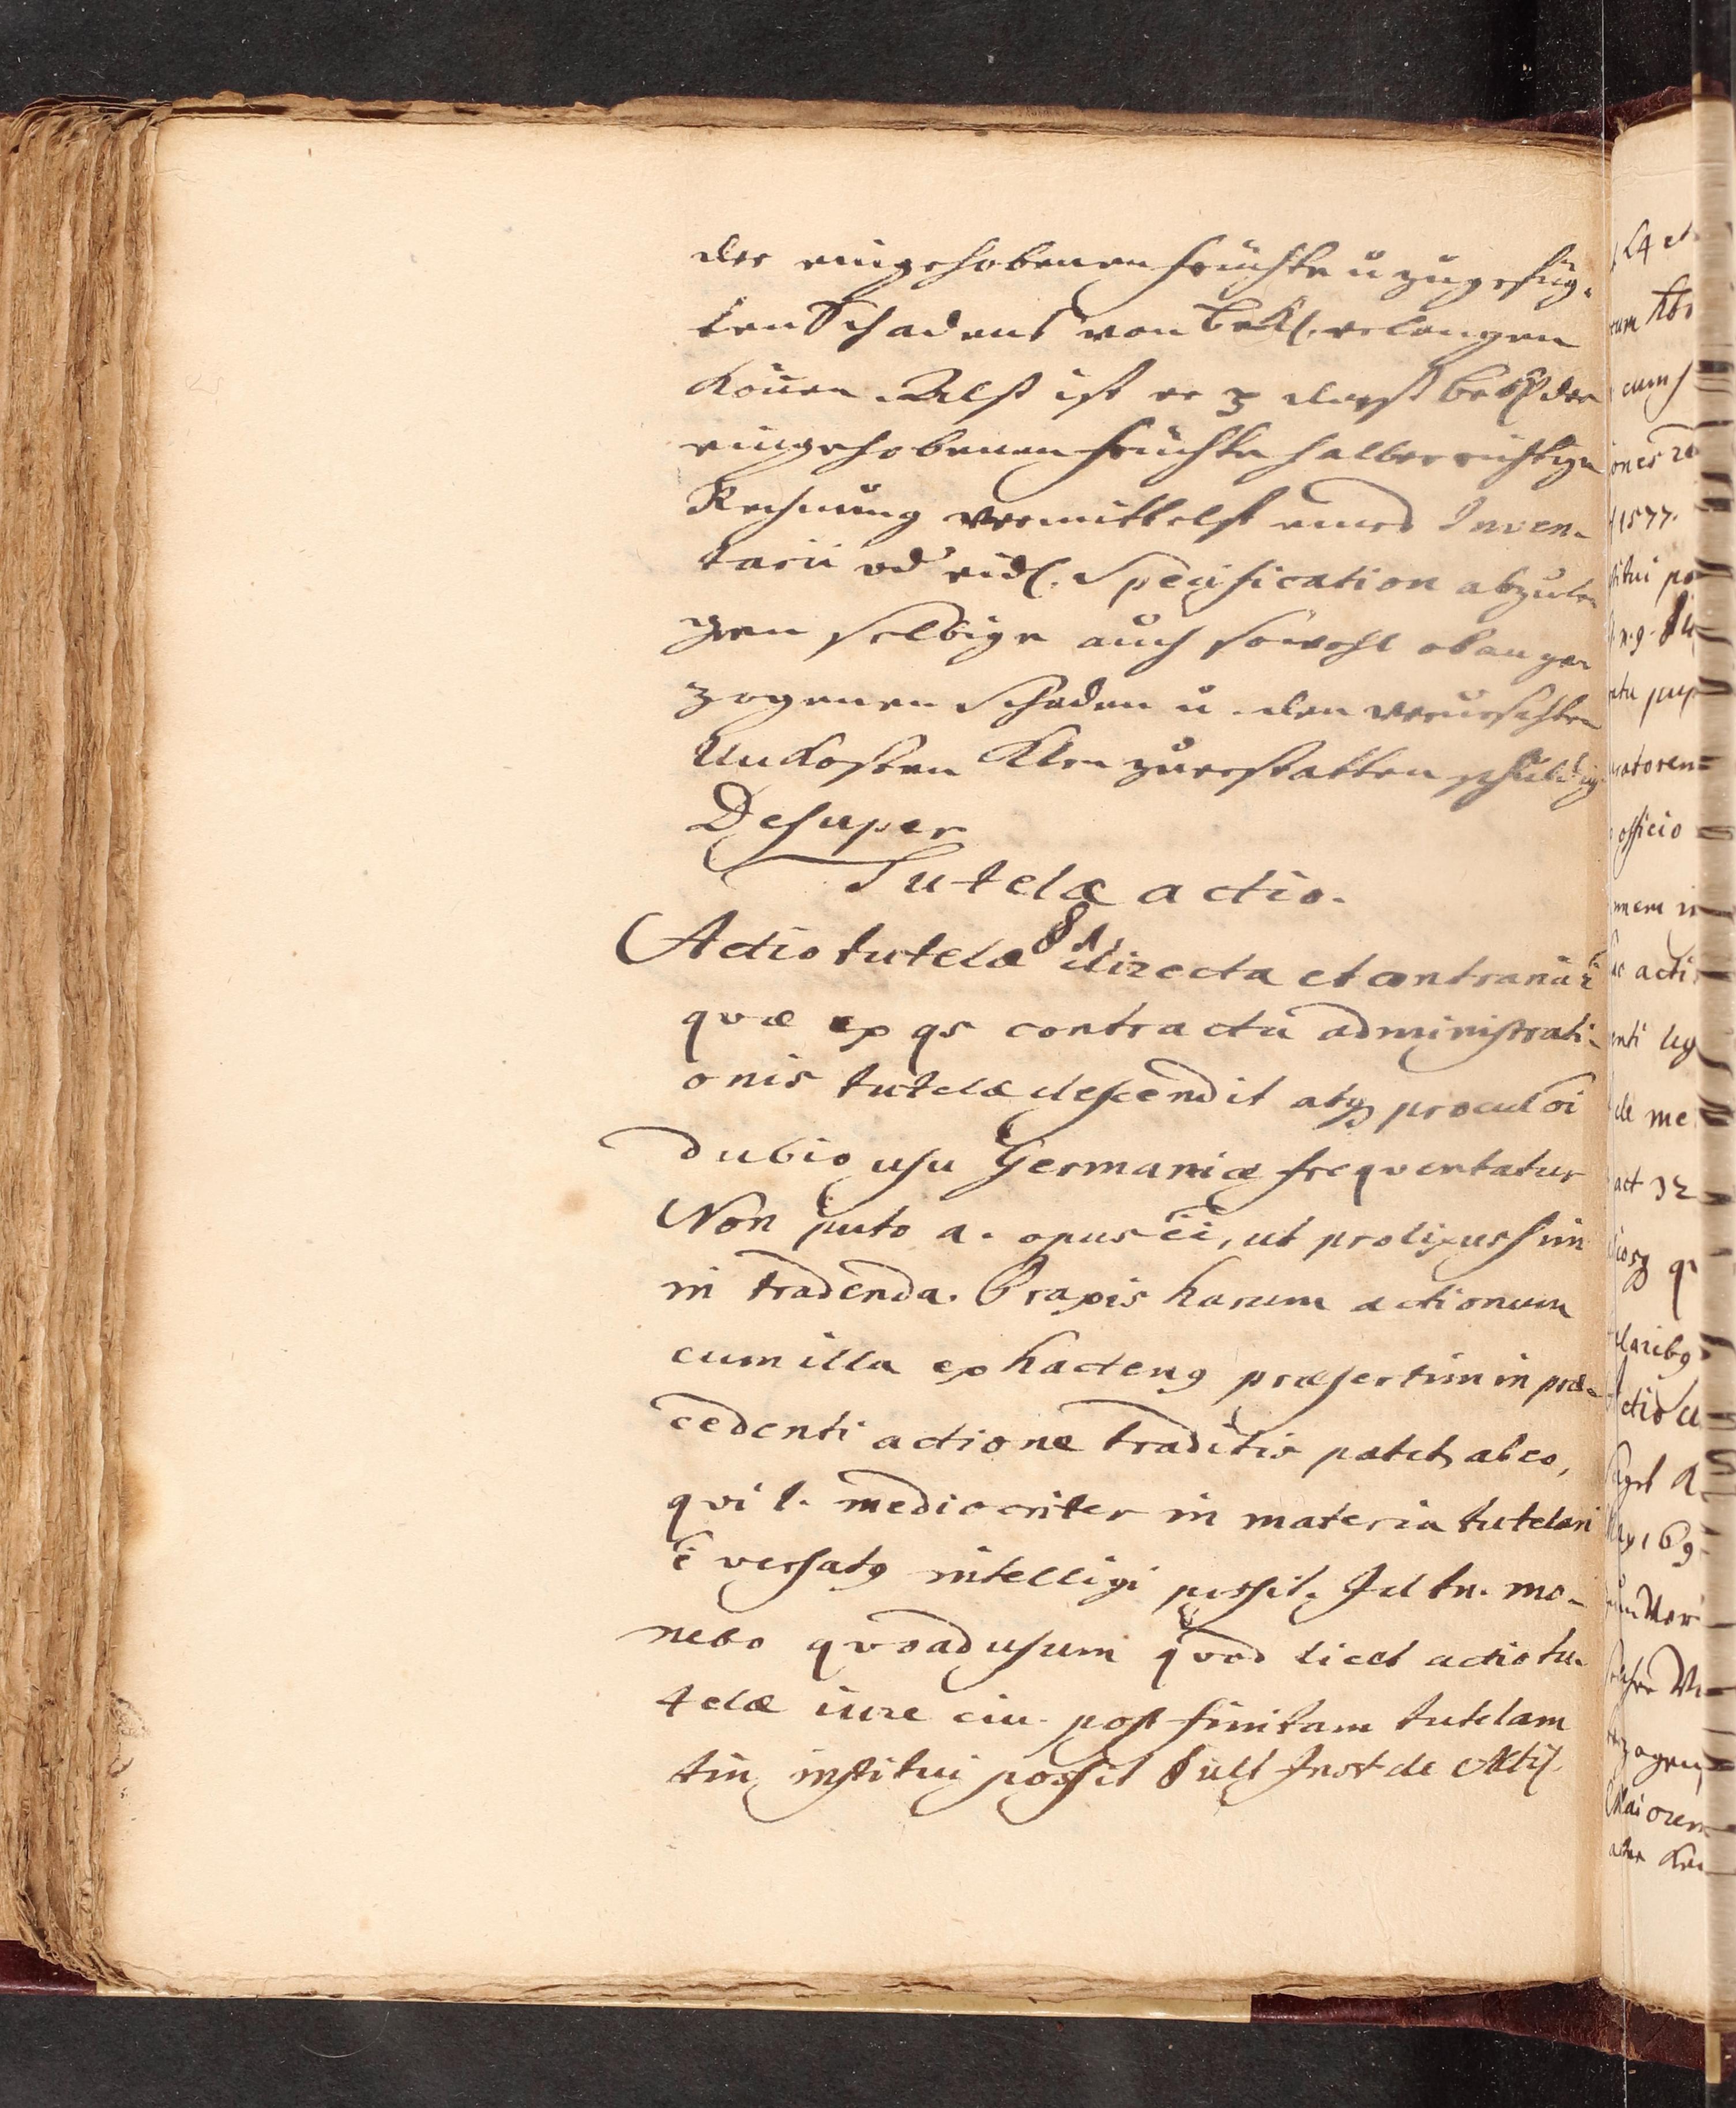 der eingehobenen früchte ü zugefüg-
ten Schadens von bekl. erlangen
können. Alß ist er daß bekl. der
eingehobenen früchte halber richtige
Rechnung vermittelst eines Inven-
tarii od eidl. Specification abzule
gen selbige auch sowohl obange
zogenen Schaden ü. den verursachten
Unkosten Klrn zuerstatten schuldig.
Desuper
Tutelæ actio.
§ 1.
Actio tutelæ directa et contraria
qvæ ex qs contractu administrati-
onis tutelæ descendit atq procul oi
dubio usu Germaniæ freqventatur
Non puto a. opus ēē, ut prolixus sim
in tradenda. Praxis harum actionum
cum illa ex hactenq præsertim in præ-
cedenti actione traditis patet, ab eo,
qvi l. mediocriter in materia tutelari
ē versatq intelligi possit. Id tn. mo-
nebo qvoad usum qvod licet actio tu-
telæ iure civ. post finitam tutelam
tm institui possit § ult Inst de Atil.
11577.
officio
de me